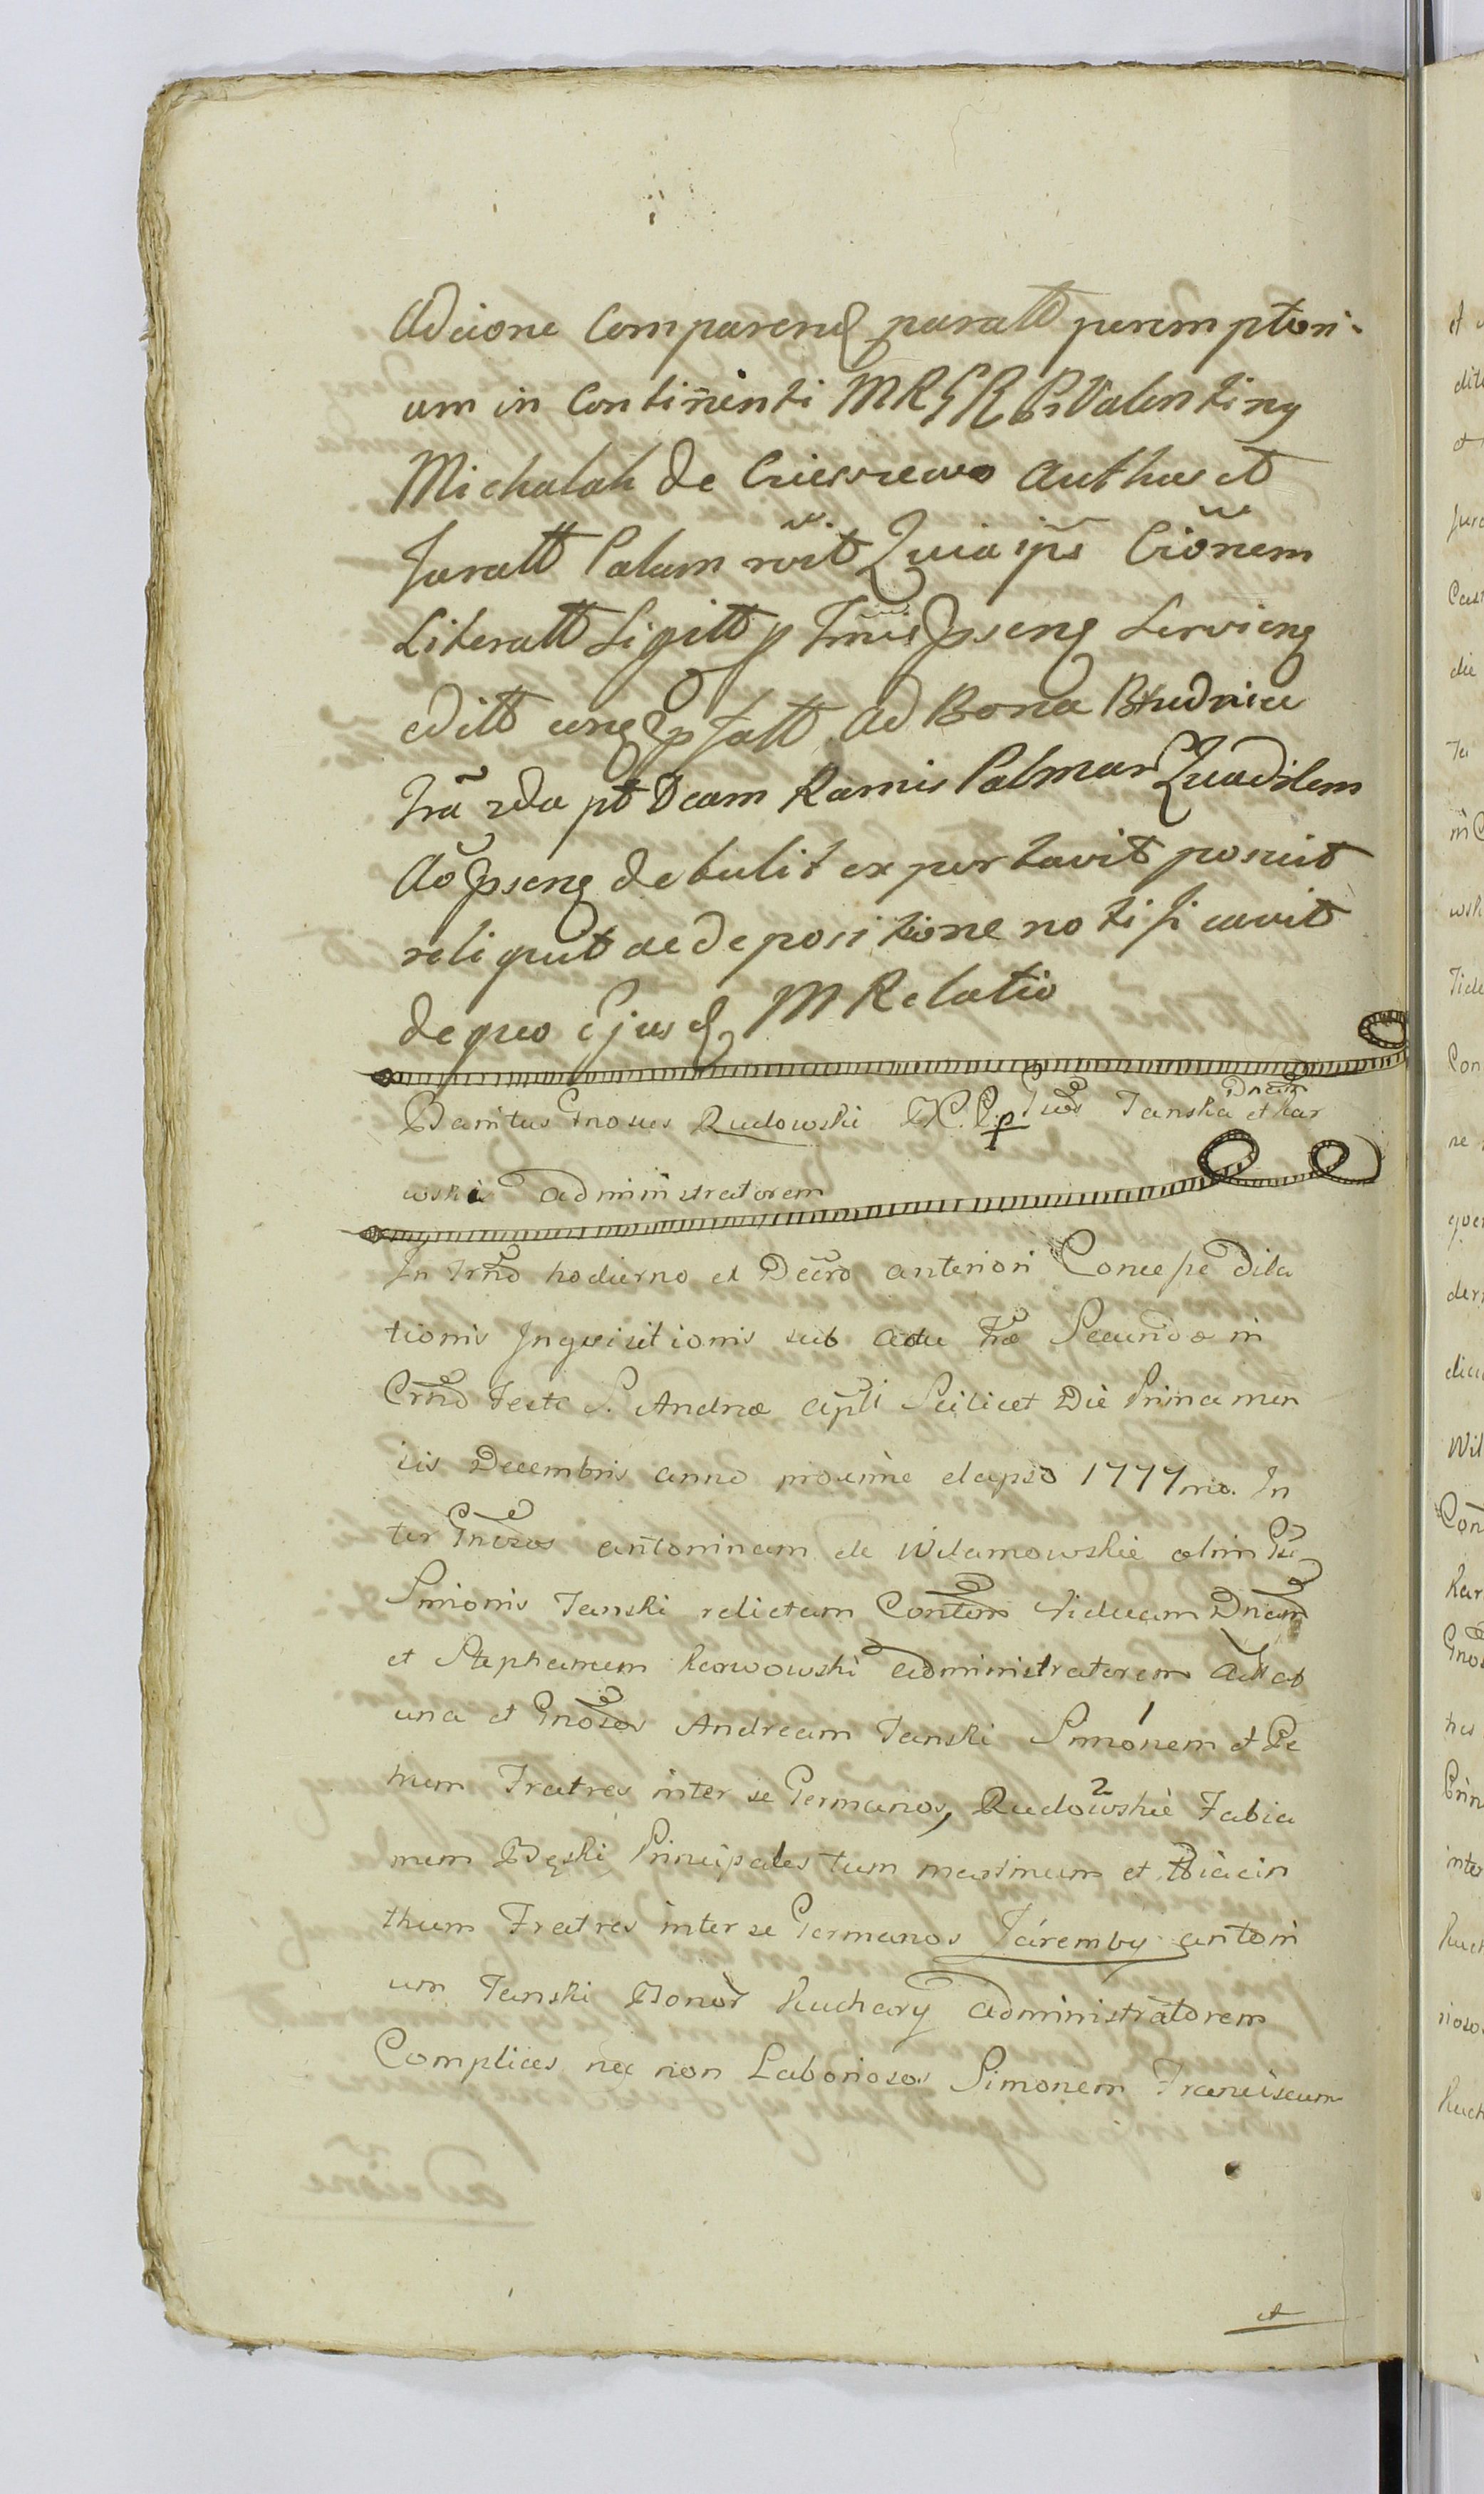 Adcione Comparend paratt peremptori-
um in Continenti MRGR Pr Valentinq
Michalak de Author et
Juratt Palam rvit Quia ips Cionem
Literatt Sigitt p Trmis Pseng Servieng
editt eong Jatt ad Bona Brudnice
fra 2da pt Dcam Ramis Palmar Quadrlem
Ao Pseng detulit exportavit posuit
reliquit ac depositione notificavit
de quo Ejusd M Relatio
Banitus Gnosus Rudowski p Gnos Tanska Dnam et Kar
wski administratorem
In Trno hodierno et Decro anteriori Concepe Dila
tionis Inquisitionis sub actu frae Secundae in
Crno Festi S. Andreae Apli Scilicet Die Prima men
sis Decembris anno proxime elapso 1777mo. In
ter Gnosos antoninam de Wilamowskie olim Gsi
Simonis Tanski relictam Contem viduam Dnam
et Stephanum Karwowski administratorem Actat
una et Gnosos Andream Tanski Simonem 1 et Pe
trum Fratres inter se Germanos, Rudowskie 2 Fabia
num Bęski Principales tum maximum et Hiacin
thum Fratres inter se Germanos Zaremby antoni
um Tanski Bonor Kuchary administratorem
Complices nec non Laboriosos Simonem Franciscum
et